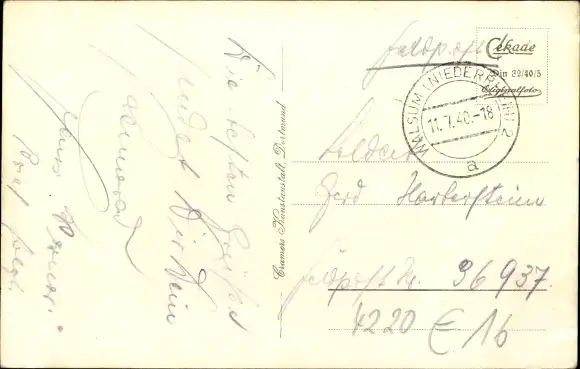 Die besten Grüße
sendet Dir Dein
Brief folgt.
Cramers Kunstanstalt, Dortmund
Feldpost
Cekade
Din 32/40/5
Originalfoto
WALSUM (NIEDERRHEIN) 2
11.7.40.-18
a
Soldat
Gerd Halberstein
Feldpost Nr. 36937.
4220 E 16